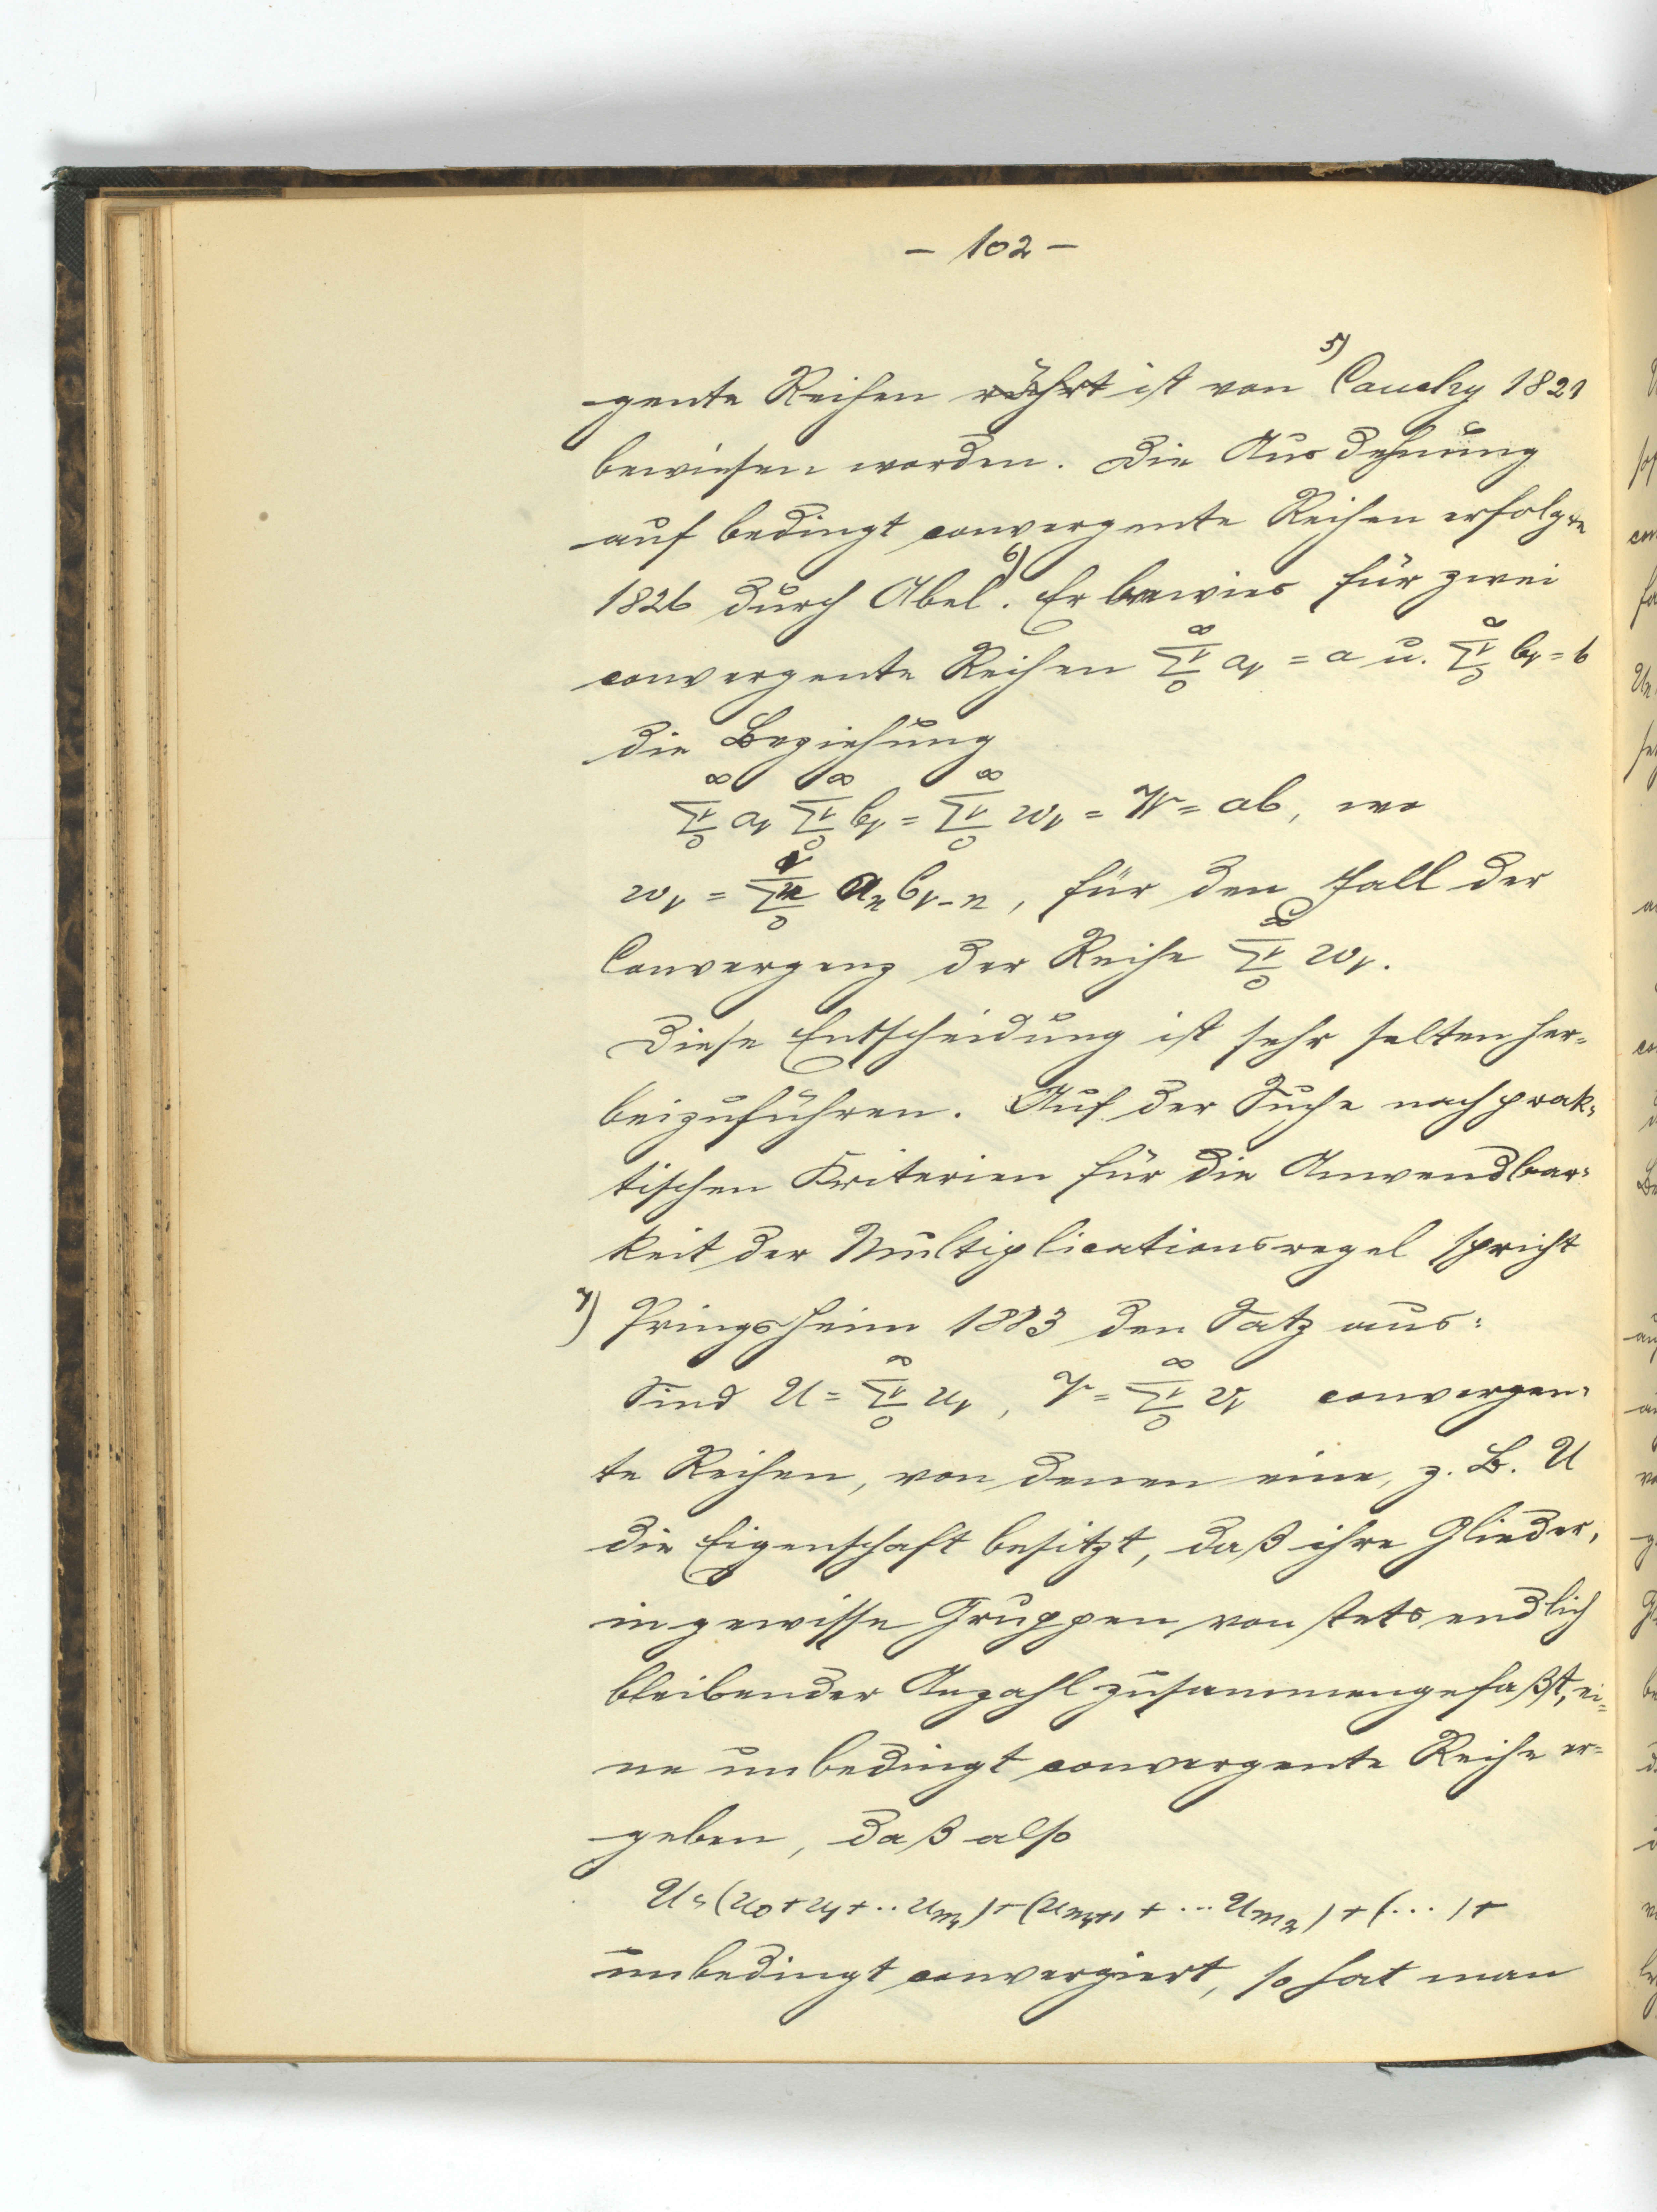 – 102 –
gente Reihen rührt ist von ⁵⁾ Cauchy 1821
bewiesen worden. Die Ausdehnung
auf bedingt convergente Reihen erfolgte
1826 durch Abel⁶⁾. Er bewies für zwei
convergente Reihen ∞Σν0 aν = a u. ∞Σν0 bν = b
die Beziehung
∞Σν0 aν ∞Σν0 bν = ∞Σν0 wν = W = ab, wo
wν = νΣn0 an bν-n, für den Fall der
Convergenz der Reihe ∞Σν0 wν.
Diese Entscheidung ist sehr selten her=
beizuführen. Auf der Suche nach prak=
tischen Kriterien für die Anwendbar=
keit der Multiplicationsregel spricht
⁷⁾ Pringsheim 1883 den Satz aus:
Sind U = ∞Σν0 uν, V = ∞Σν0 vν convergen=
te Reihen, von denen eine, z. B. U
die Eigenschaft besitzt, daß ihre Glieder,
in gewisse Gruppen von stets endlich
bleibender Anzahl zusammengefaßt, ei=
ne unbedingt convergente Reihe er=
geben, daß also
U = (u0 + u1 + .. um1) + (um1+1 + ... um2) + (...) +
unbedingt convergiert, so hat man